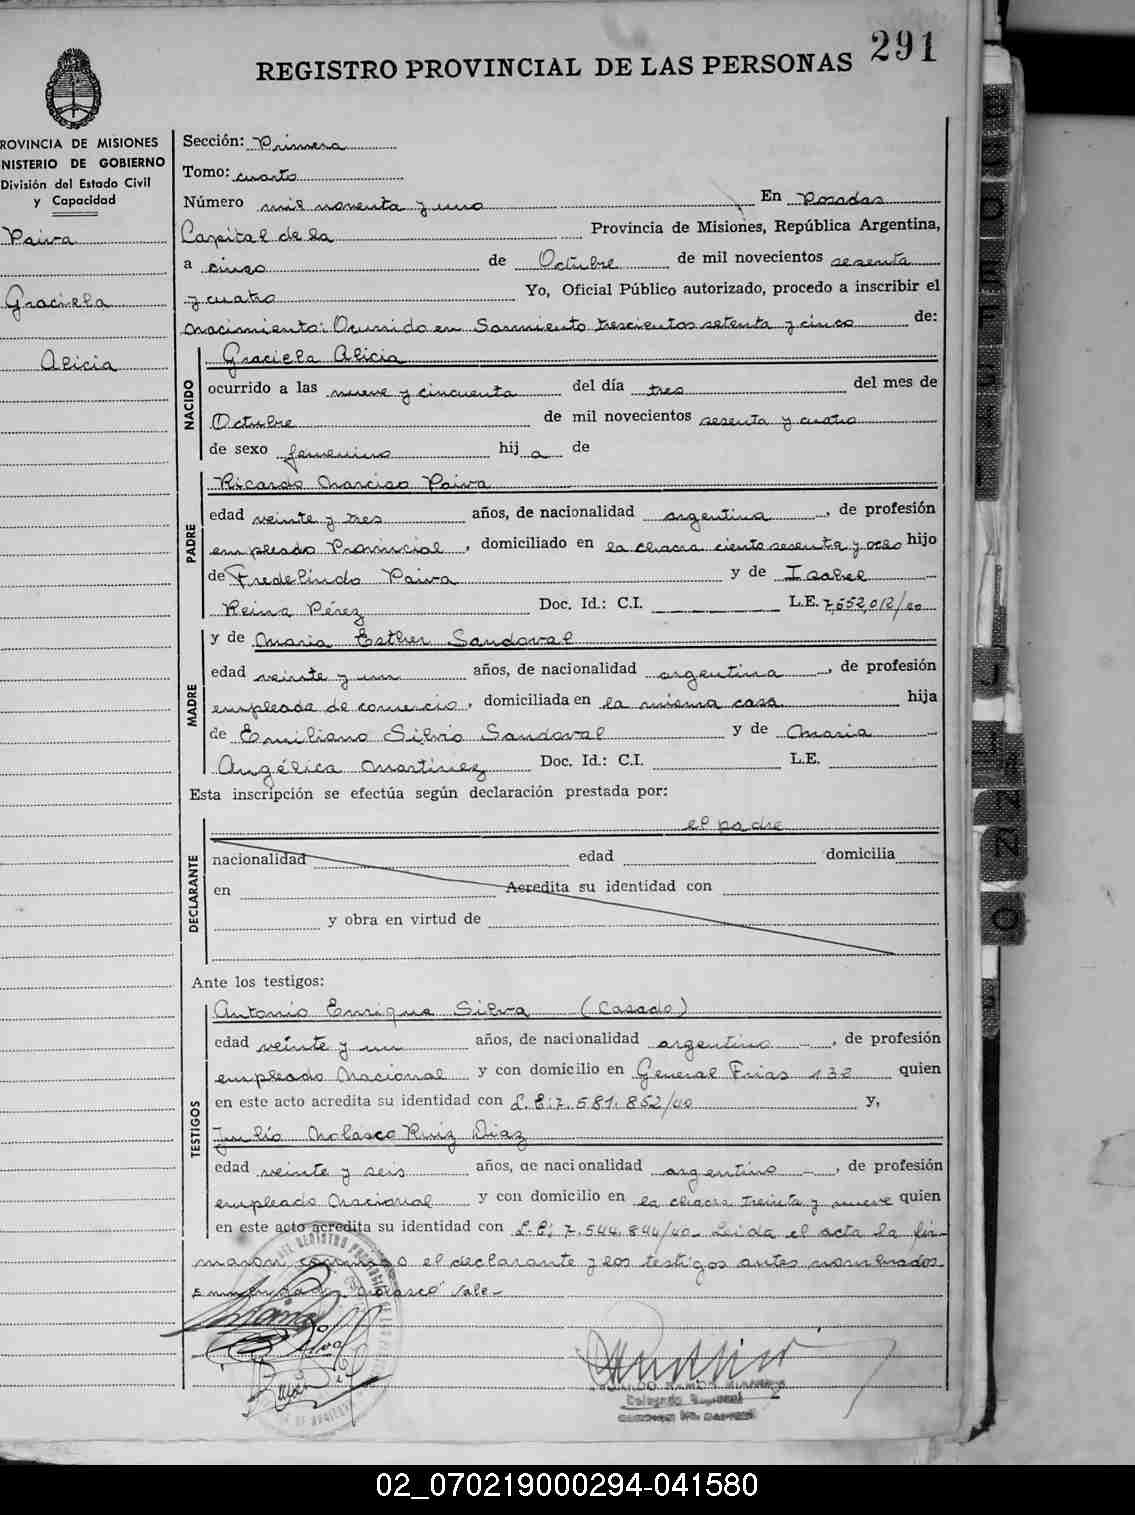 291
REGISTRO PROVINCIAL DE LAS PERSONAS
ROVINCIA DE MISIONES
NISTERIO DE GOBIERNO
División del Estado Civil
y Capacidad
Paiva
Graciela
Alicia
Sección: Primera
Tomo: cuarto
Número mil noventa y uno En Posadas
Capital de la Provincia de Misiones, República Argentina,
a cinco de Octubre de mil novecientos sesenta
y cuatro Yo, Oficial Público autorizado, procedo a inscribir el
nacimiento: Ocurrido en Sarmiento trescientos setenta y cinco de:
NACIDO
Graciela Alicia
ocurrido a las nueve y cincuenta del día tres del mes de
Octubre de mil novecientos sesenta y cuatro
de sexo femenino hij a de
PADRE
Ricardo Narciso Paiva
edad veinte y tres años, de nacionalidad argentina, de profesión
empleado Provincial, domiciliado en la chacra ciento sesenta y ocho hijo
de Fredelindo Paiva y de Isabel
Reina Pérez Doc. Id.: C.I. L.E. 7,652,012/60
MADRE
y de Maria Esther Sandoval
edad veinte y un años, de nacionalidad argentina, de profesión
empleada de comercio, domiciliada en la misma casa hija
de Emiliano Silvio Sandoval y de Maria
Angélica Martinez Doc. Id.: C.I. L.E.
Esta inscripción se efectúa según declaración prestada por:
DECLARANTE
el padre
nacionalidad edad domicilia
en Acredita su identidad con
y obra en virtud de
Ante los testigos:
TESTIGOS
Antonio Enrique Silva (Casado)
edad veinte y un años, de nacionalidad argentino, de profesión
empleado Nacional y con domicilio en General Frias 132 quien
en este acto acredita su identidad con L.E: 7.581.852/40 y,
Julio Nolasco Ruiz Diaz
edad veinte y seis años, de nacionalidad argentino, de profesión
empleado Nacional y con domicilio en la chacra treinta y nueve quien
en este acto acredita su identidad con L.E; 7.544.844/40 Leida el acta la fir-
maron conmigo el declarante y los testigos antes nombrados
Enmendado: Nolasco Vale-
Delegado Regional
02_070219000294-041580